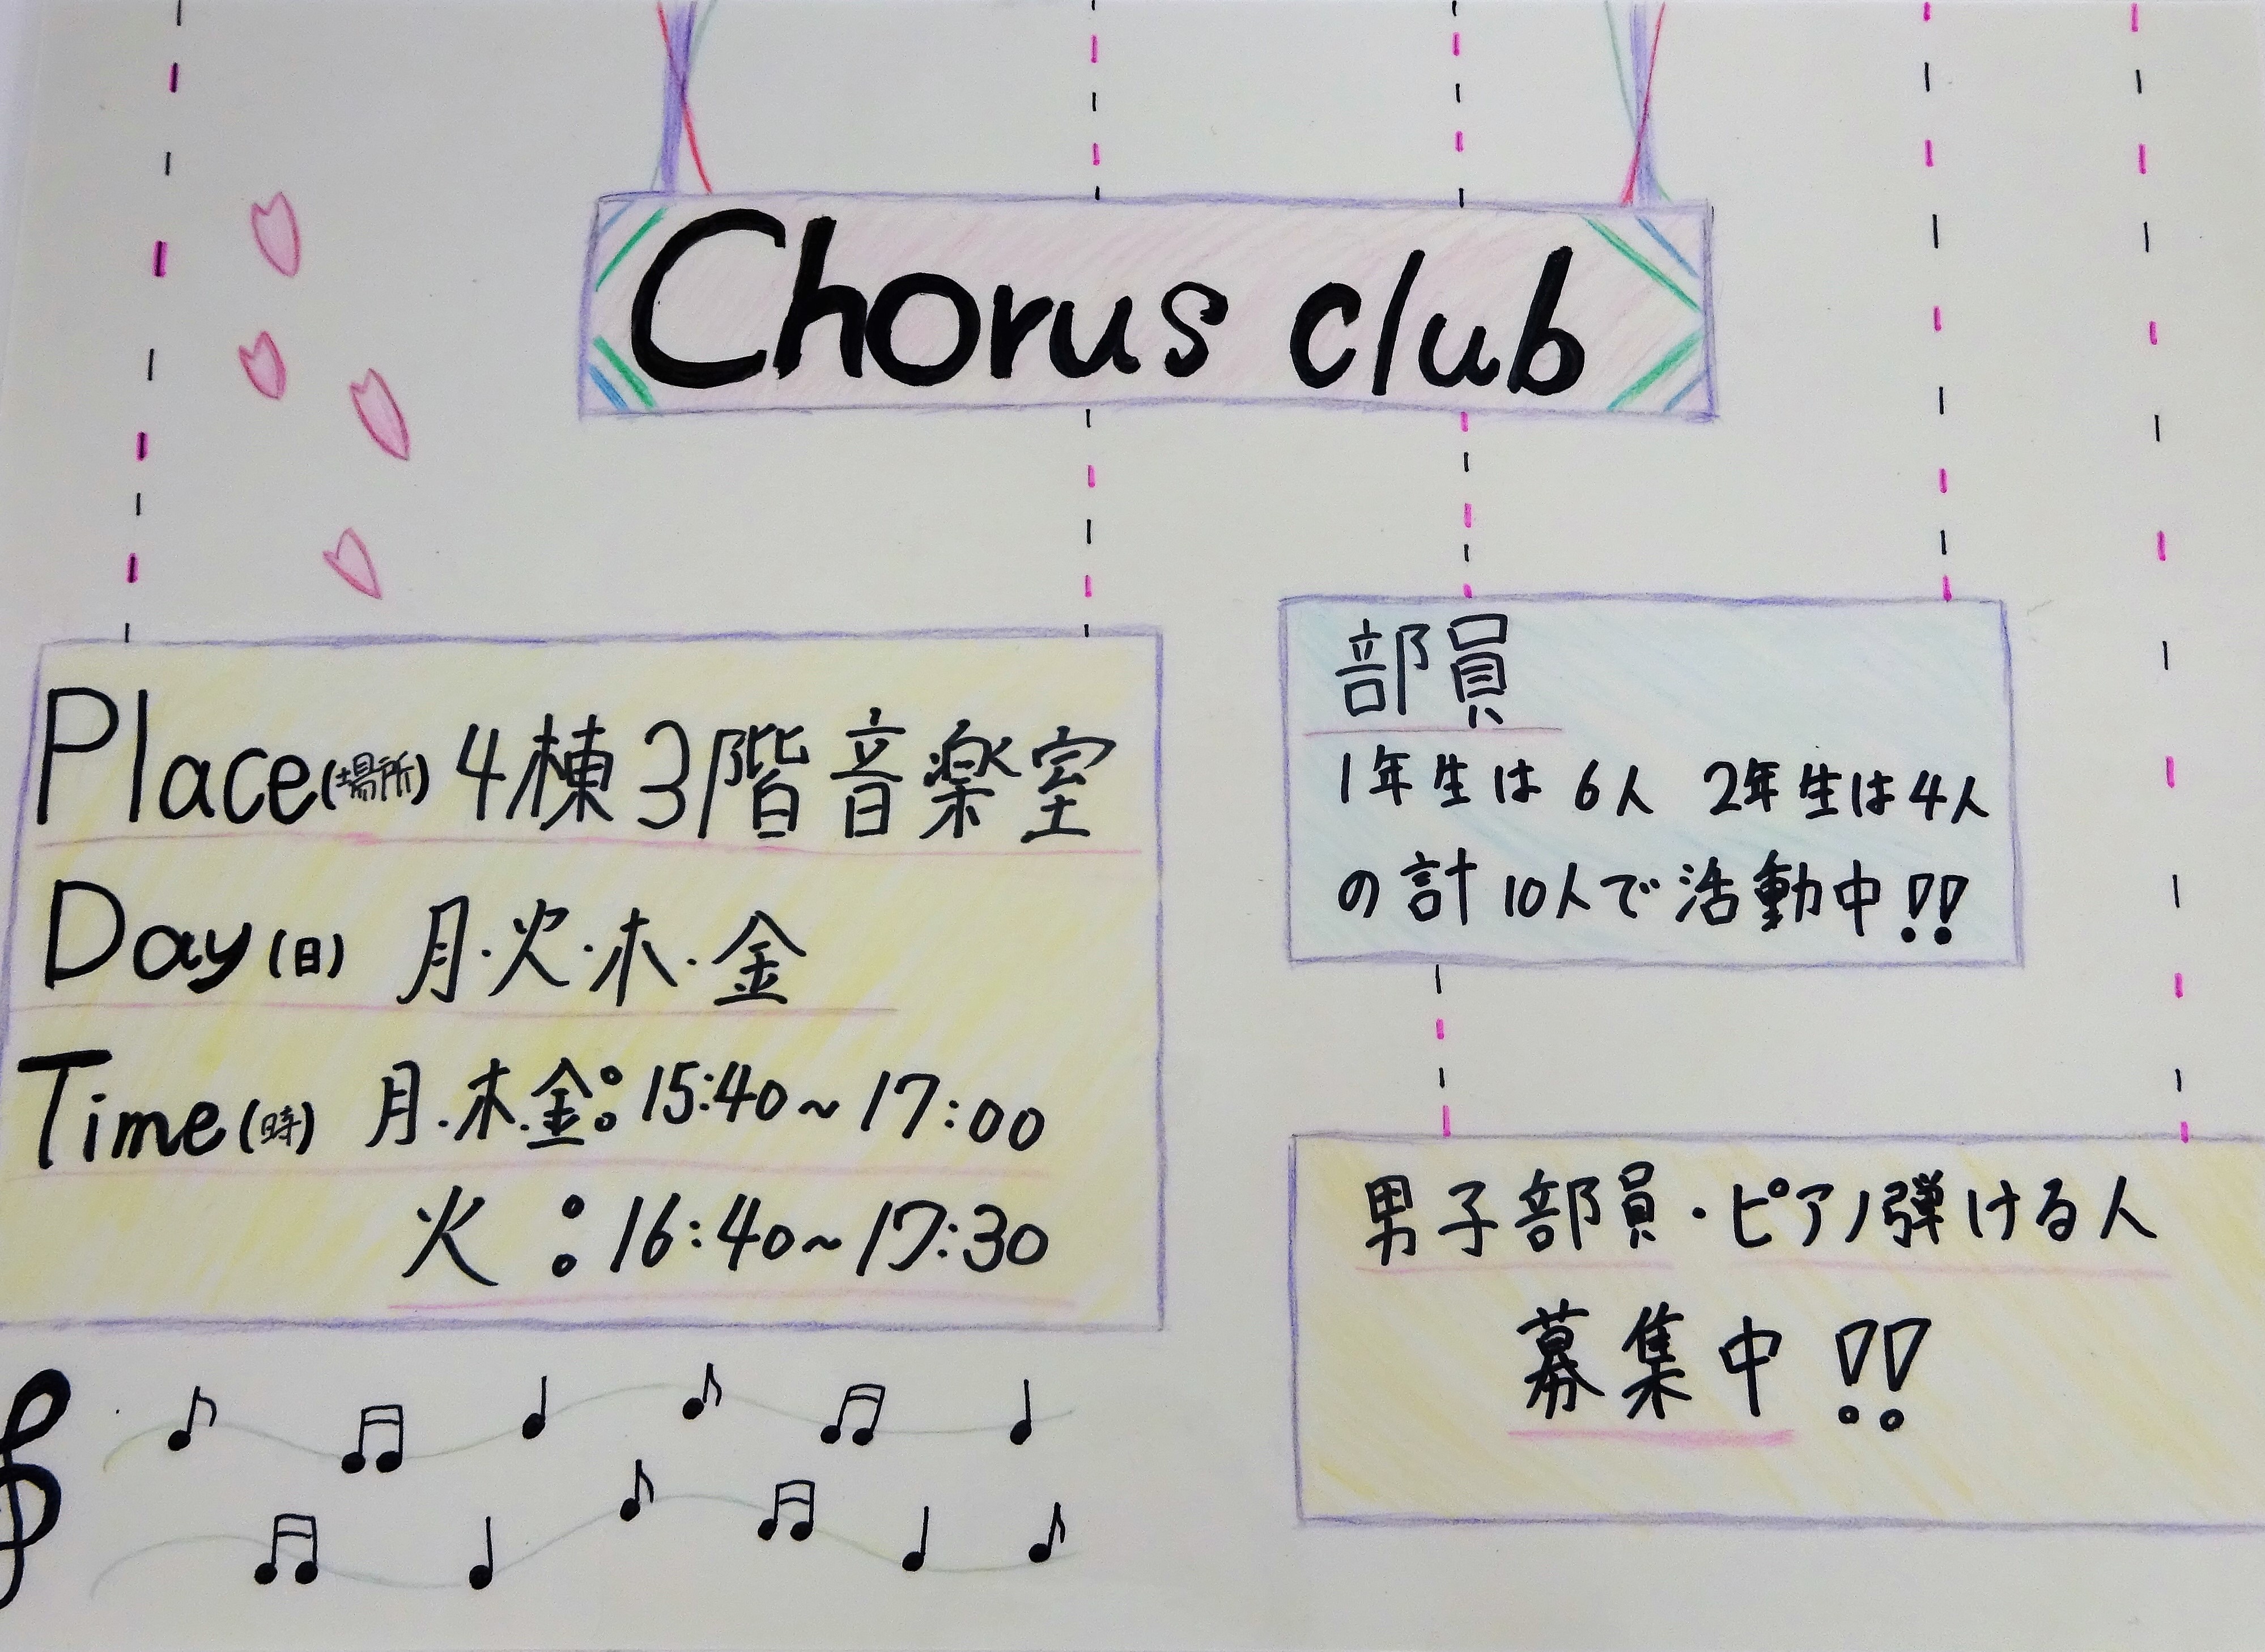 Chorus club
Place(場所) 4棟3階音楽室
Day(日) 月・火・木・金
Time(時) 月.木.金:15:40~17:00
火:16:40~17:30
部員
1年生は6人 2年生は4人
の計10人で活動中!!
男子部員・ピアノ弾ける人
募集中!!